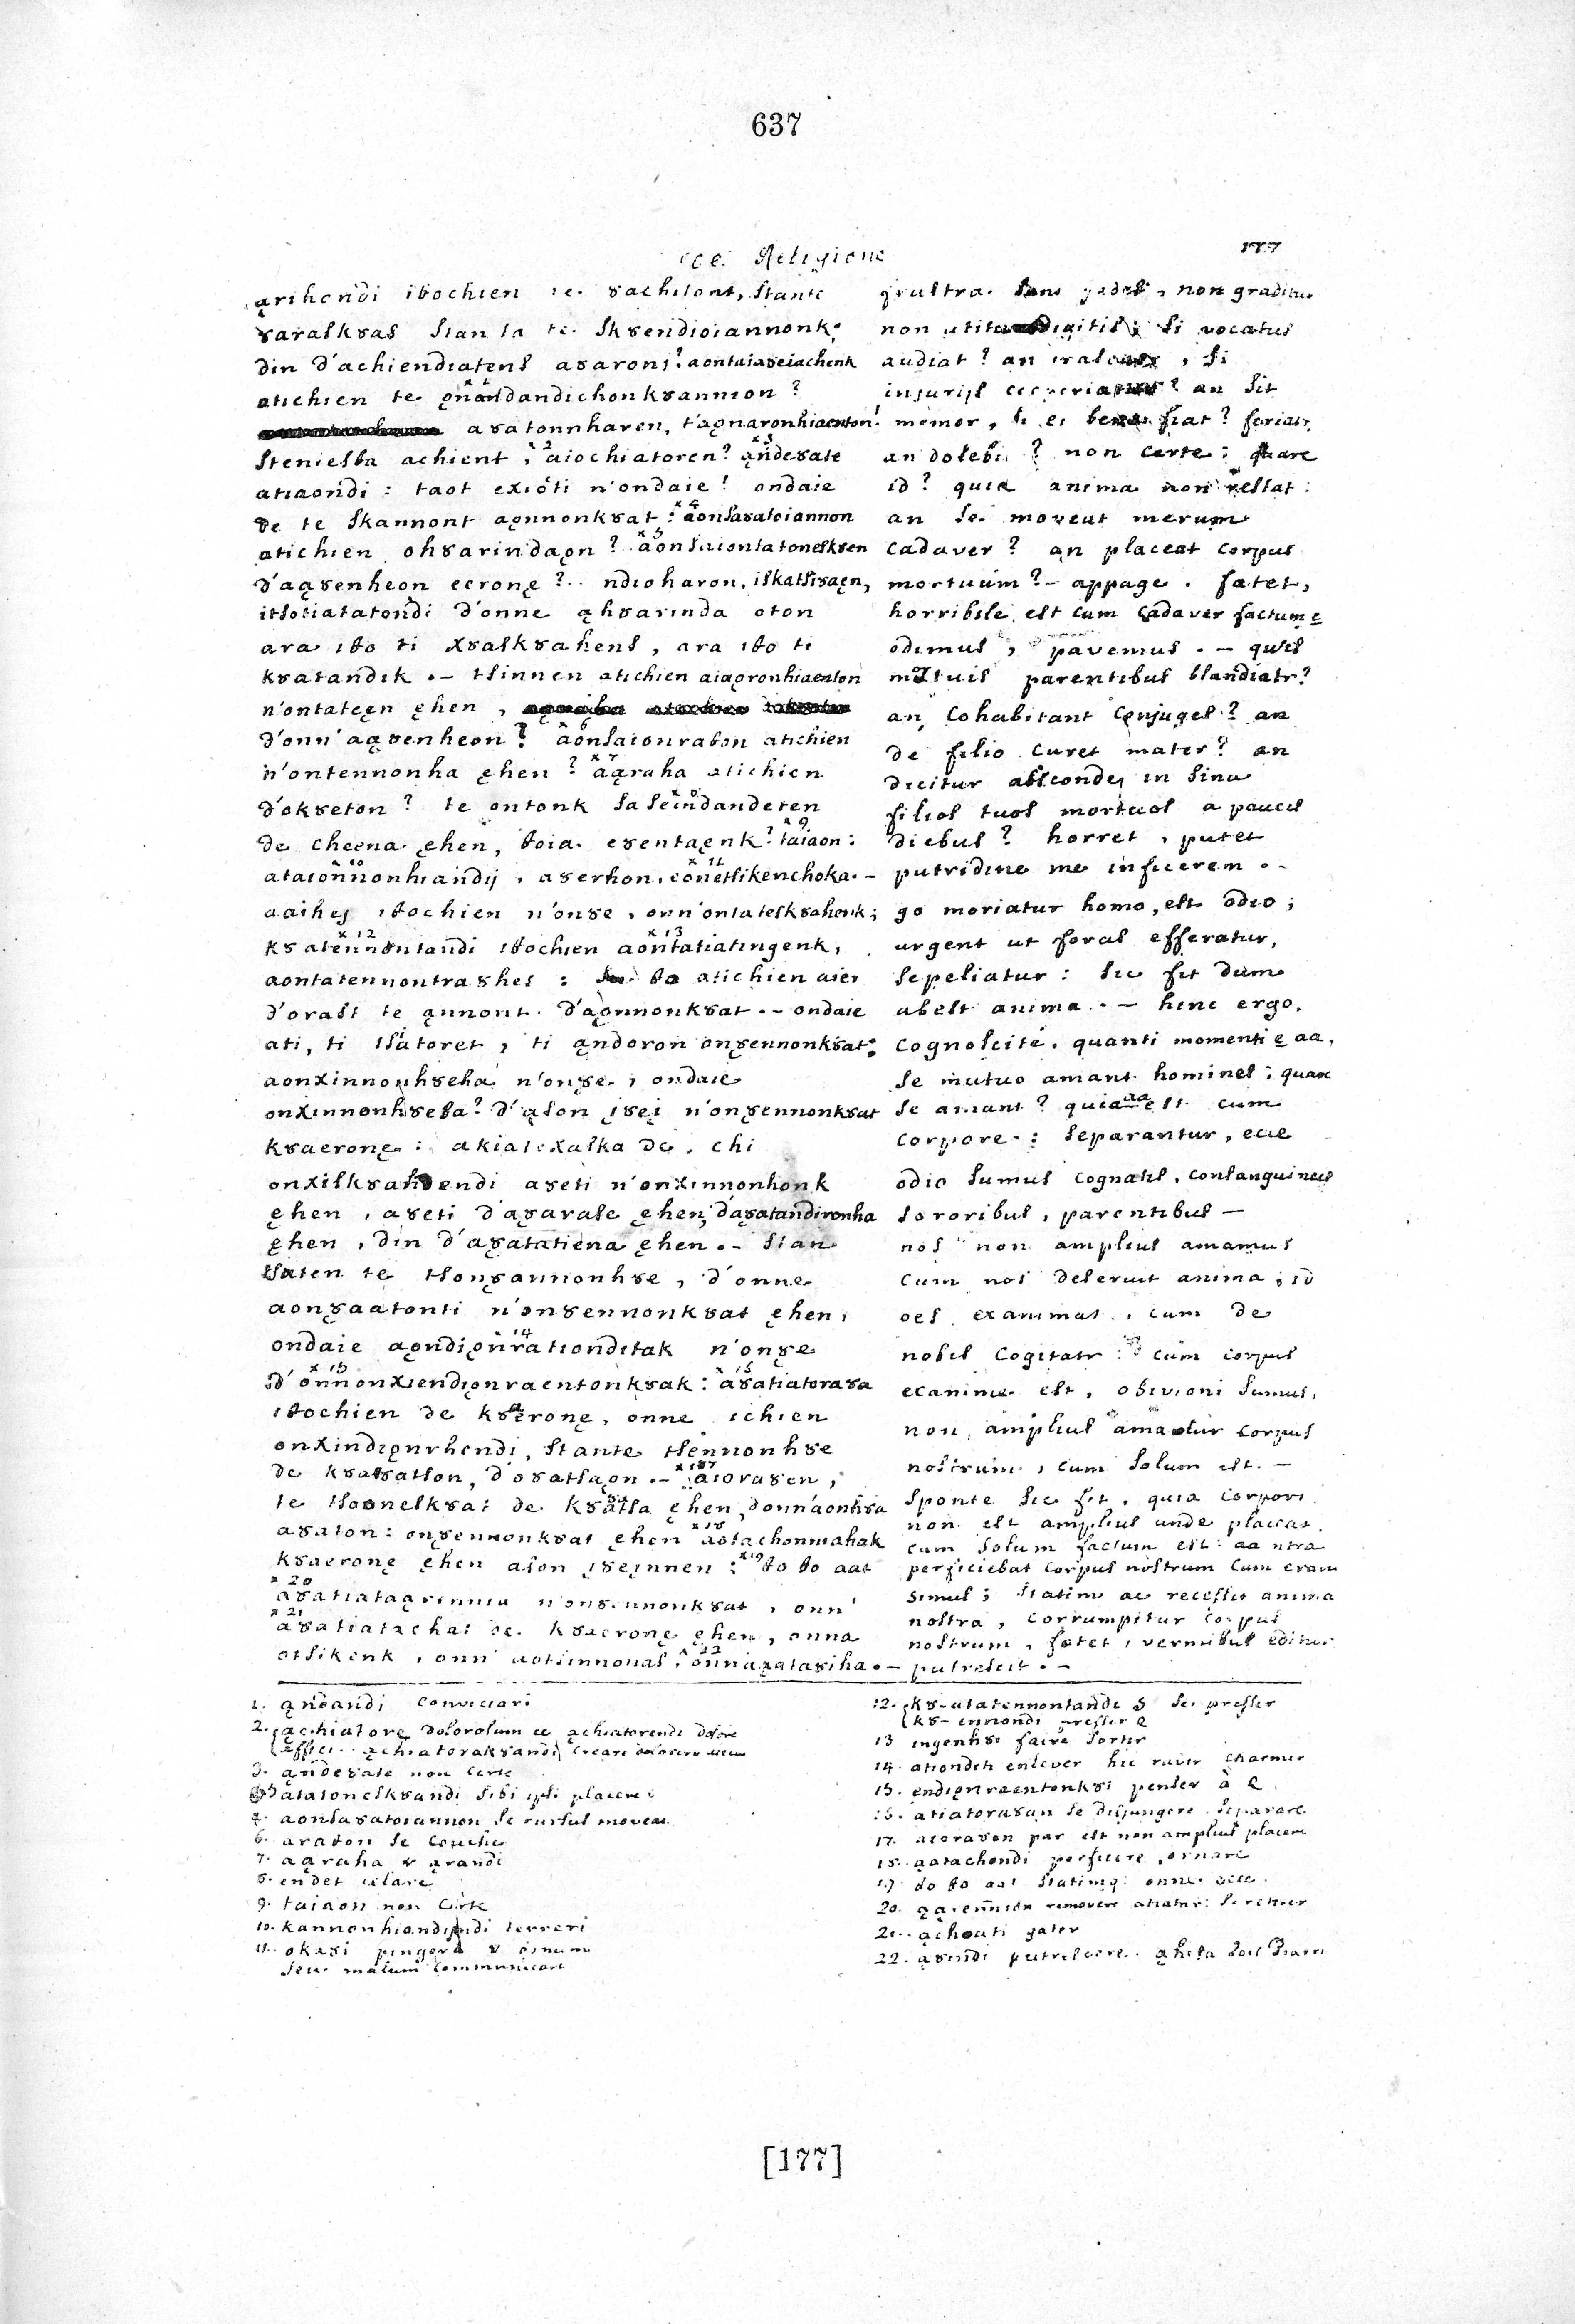 637
De Religione
177
ąrihendi iθochien te 8achitont, stante
8arask8as stan sa te sk8endioiannonk;
din d'achiendiatens a8arons? aontaia8eiachenk
atichien te dandichonk8annion?
a8atonnharen, t'aǫnaronhiaenton!
steniesθa achient, aiochiatoren? ąnde8ate
atiaondi: taot exioti n'ondaie? ondaie
de te skannont aǫnnonk8at: aonsa8atoiannon
atichien oh8arindaǫn? aonsaiontatonesk8en
d'aą8enheon eeronę? ndioharon, iskatsi8aęn,
itsotiatatondi d'onne ąh8arinda oton
ara iθo ti x8ask8ahens, ara iθo ti
k8atandik .- tsinnen atichien aiaǫronhiaenton
n'ontateęn ęhen,
d'onn' aą8enheon? aonsaionraθon atichien
n'ontennonha ęhen? aąraha atichien
d'ok8eton? te ontonk saseindandeten
de cheena ęhen, θoia e8entaęnk? taiaon:
ataionnonhiandij, a8erhon, eonetsikenchoka. -
aaihej iθochien n'on8e, onn'ontatesk8ahenk;
k8atennontandi iθochien aontatiatingenk,
aontatennontra8hes: θo atichien aiei
d'orast te ąnnont d'aǫnnonk8at .- ondaie
ati, ti isatoret, ti ąndoron on8ennonk8at:
aonxinnonh8eha n'on8e, ondaie
onxinnonh8eθa? d'ąson į8eį n'on8ennonk8at
k8aeronę: akiatexaska de, chi
onxisk8ahendi a8eti n'onxinnonhonk
ęhen, a8eti d'a8arase ęhen, d'a8atandironha
ęhen, din d'a8atatiena ęhen .- stan
isaten te tson8annonh8e, d'onne
aon8aatonti n'on8ennonk8at ęhen,
ondaie aǫndiǫnrationditak n'on8e
d'onnonxiendiǫnraentonk8ak: a8atiatora8a
iθochien de k8aeronę, onne ichien
onxindiǫnrhendi, stante tsennonh8e
de k8a8atson, d'o8atsaǫn .- aiora8en,
te tsaonesk8at de k8atsa ęhen, donn'aontisa
a8aton: on8ennonk8at ęhen aotachonmahak
k8aeronę ęhen ason į8eįnnen: θo θo aat
a8atiataąrennia n'on8ennonk8at, onn'
a8atiatachat de k8aeronę ęhen, onna
otsikenk, onn' aotsinnonas, onna8ata8iha .-
frustra sunt pedes, non graditur
non utitur digitis; si vocatus
audiat? an irascatur, si
injurijs an sit
memor, si ei bene fiat? feriatr,
an dolebit? non certe: quare
id? quia anima non restat:
an se moveat merum
cadaver? an placeat corpus
mortuum? - appage. fætet,
horribile est cum cadaver factum e
odimus, pavemus. - quis
mortuis parentibus blandiatr?
an cohabitant conjuges? an
de filio curet mater? an
dicitur absconde in sinu
filios tuos mortuos a paucis
diebus? horret, putet
putridine me inficerem .-
go moriatur homo, est odio;
urgent ut foras efferatur,
sepeliatur: sic fit dum
abest anima. - hinc ergo,
cognoscite, quanti momenti e aa,
se mutuo amant homines; quare
se amant? quia aa est cum
corpore: separantur, ecce
odio sumus cognatis, consanguineis
sororibus, parentibus -
nos non amplius amamus
cum nos deseruit anima; id
oes exanimat, cum de
nobis cogitatr: cum corpus
exanime est, oblivioni sumus,
non amplius amatur corpus
nostrum, cum solum est. -
sponte sic fit, quia corpori
non est amplius unde placeat.
cum solum factum est: aa ntra
perficiebat corpus nostrum cum eram
simul; statim ac recessit anima
nostra, corrumpitur corpus
nostrum, fætet, vermibus editur
putrescit. -
1. ąndandi conviciari
2. ąchiatore dolorosum ee ąchiatorendi dolore
affici ąchiatorak8andi creare dolorem
3. ąnde8ate non certe
atatonesk8andi sibi ipsi placere
4. aonsa8atoiannon se rursus movere
6. araθon se coucher
7. aąraha v ąrandi
8. endet celare
9. taiaon non certe
10. kannonhiandi terreri
11. oka8i pingere
seu malum communicare
12. k8-atatennontandi S se presser
k8-ennondi presser 2
13 ingenh8i faire sortir
14. ationditi enlever hic ravir charmer
15. endiǫnraentonk8i penser à 2
16. atiatora8an se disjungere separare
17. aiora8en par est non amplius placere
18. aatachondi perficere, ornare
19. θo θo aat statimq: onne ecce
20. ąąrennion removere atiatar: se retirer
21. ąchoati gater
22. ą8indi putrescere
[177]